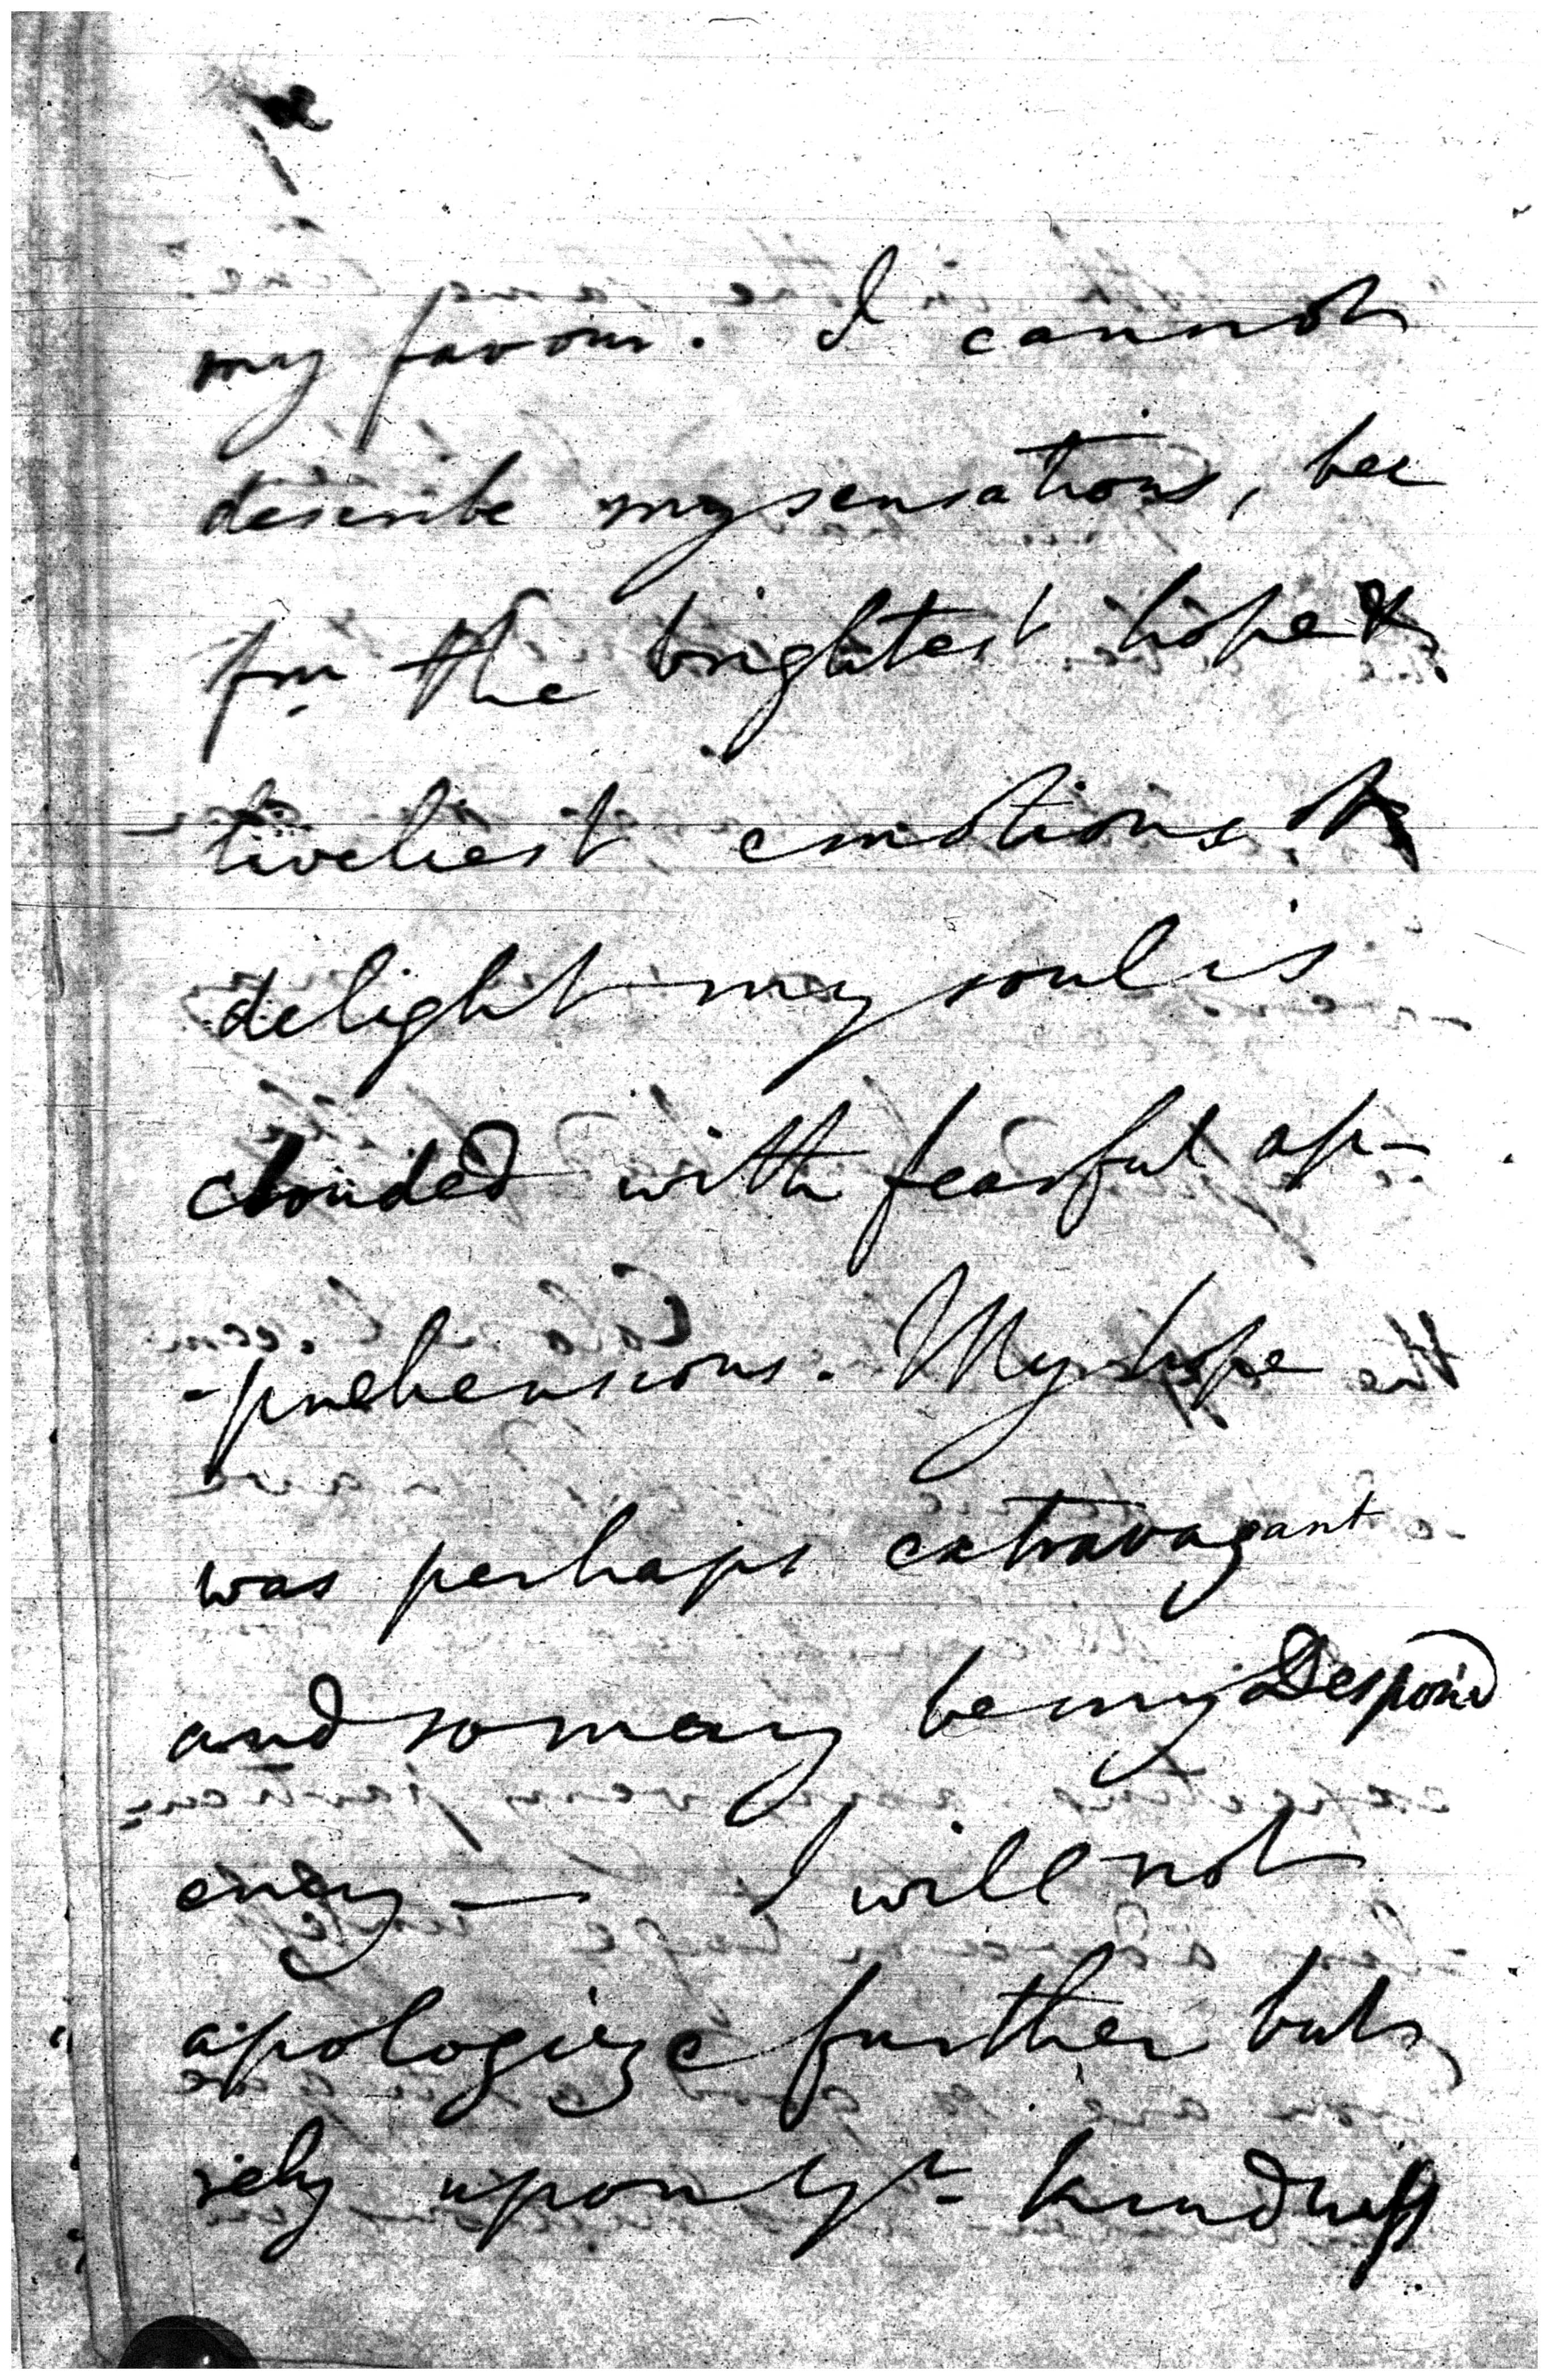 my favour. I cannot
describe my sensations, but
from the brightest hope &
liveliest emotions of
delight my soul is
clouded with fearful ap-
-prehensions. My hope
was perhaps extravagant
and so may be my Despond
ency — I will not
apologize further but
rely upon yr kindness